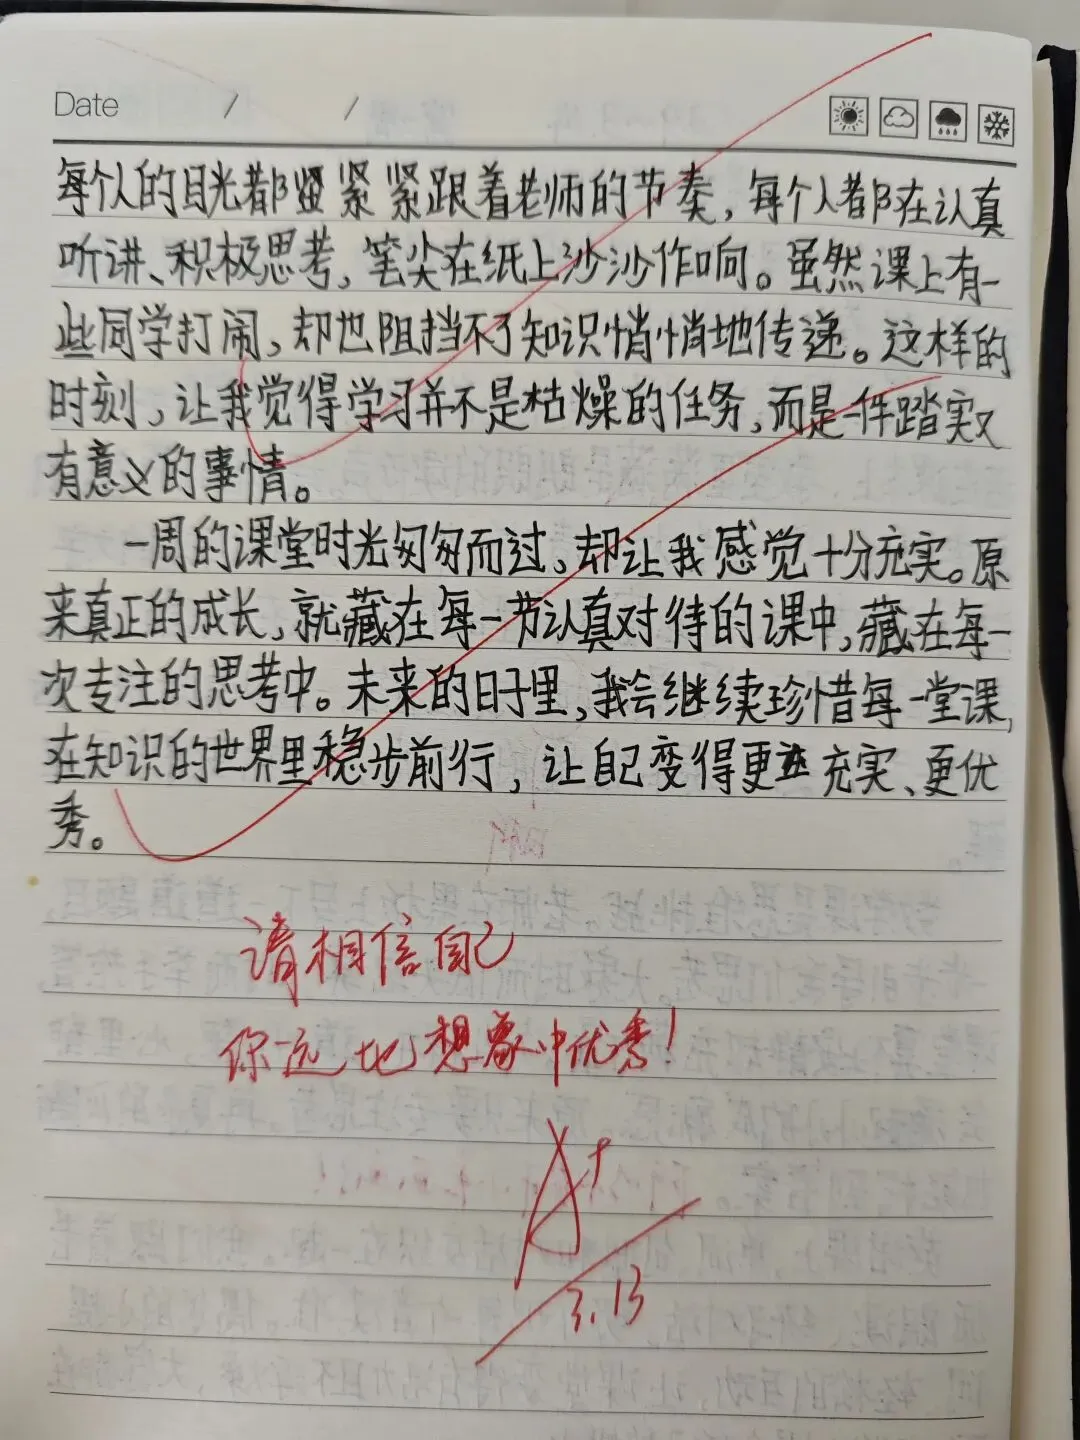 Date / /
每个人的目光都紧紧紧跟着老师的节奏，每个人都在认真
听讲、积极思考，笔尖在纸上沙沙作响。虽然课上有一
些同学打闹，却也阻挡不了知识悄悄地传递。这样的
时刻，让我觉得学习并不是枯燥的任务，而是一件踏实又
有意义的事情。
一周的课堂时光匆匆而过，却让我感觉十分充实。原
来真正的成长，就藏在每一节认真对待的课中，藏在每一
次专注的思考中。未来的日子里，我会继续珍惜每一堂课，
在知识的世界里稳步前行，让自己变得更 充实、更优
秀。
请相信自己
你远比想象中优秀！
A+
3.13